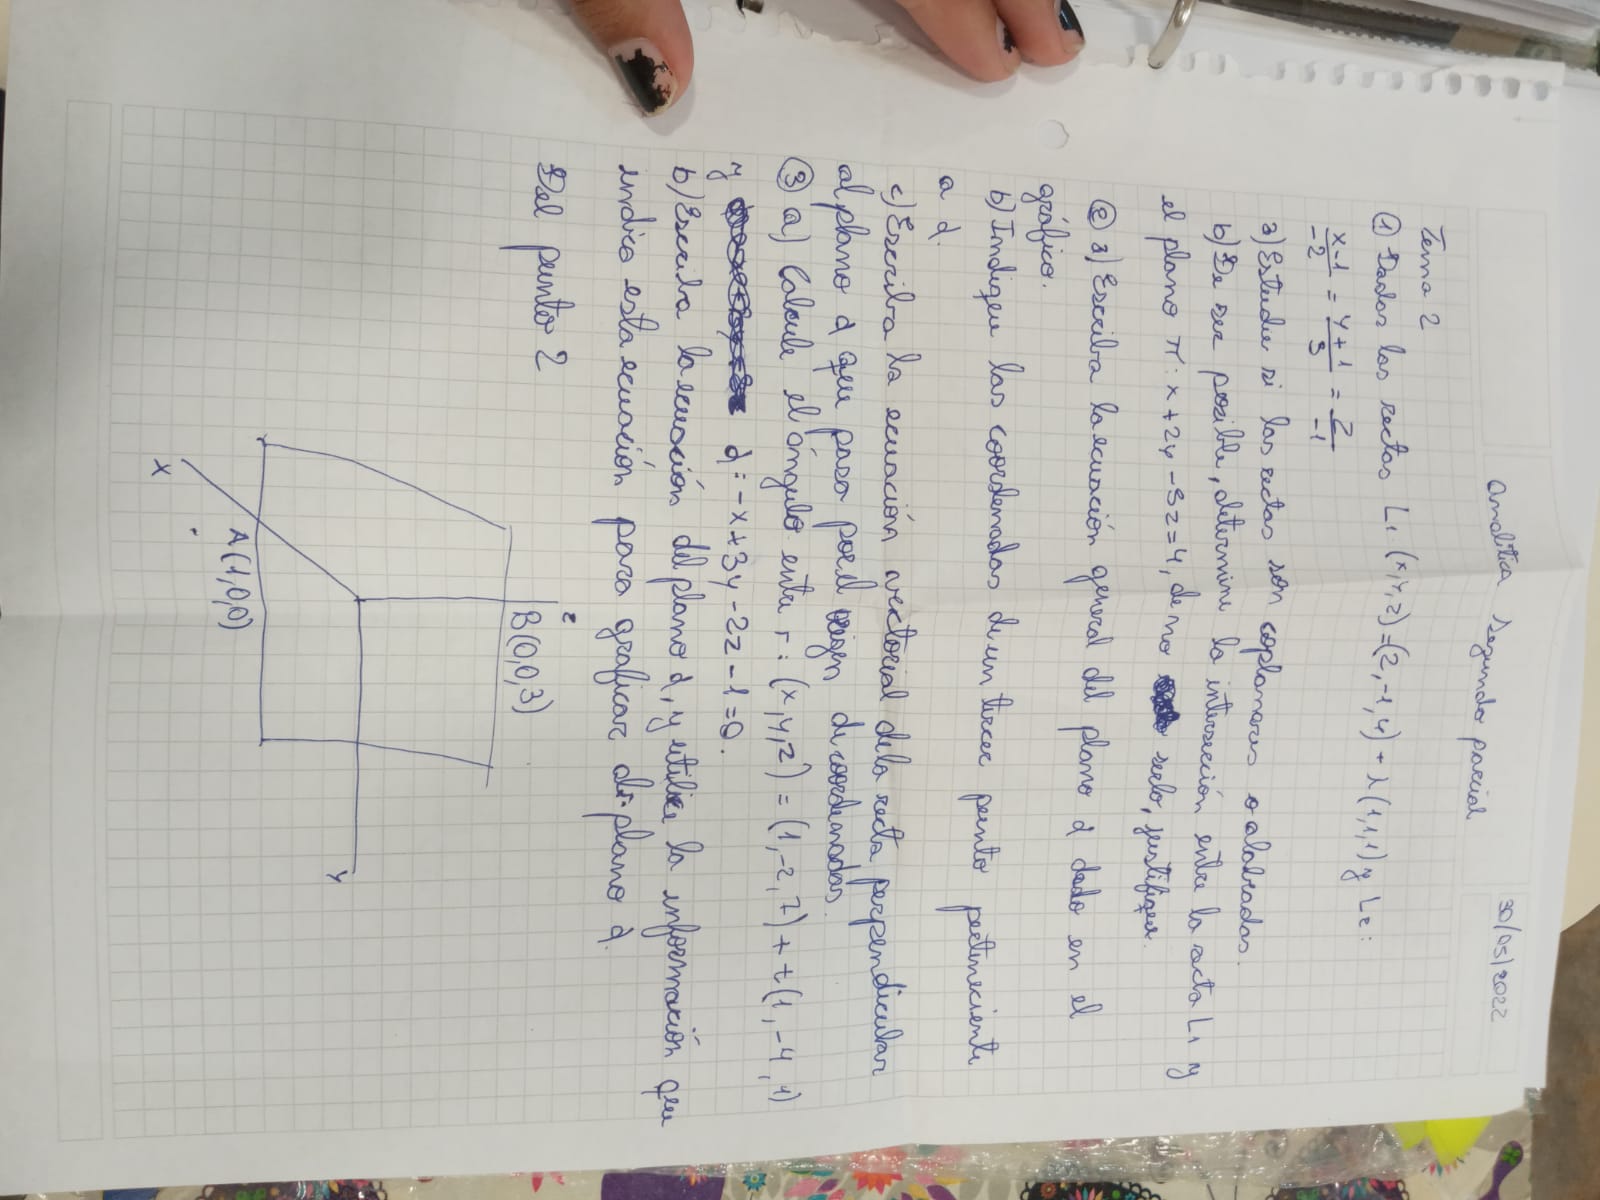 Analítica Segundo parcial
30/05/2022
Tema 2
① Dadas las rectas L1: (x,y,z)=(2,-1,4)+λ(1,1,1) y L2:
x-1/-2 = y+1/3 = z/-1
a) Estudie si las rectas son coplanares o alabeadas.
b) De ser posible, determine la intersección entre la recta L1 y
el plano π: x+2y-3z=4, de no serlo, justifique.
② a) Escriba la ecuación general del plano α dado en el
gráfico.
b) Indique las coordenadas de un tercer punto perteneciente
a α.
c) Escriba la ecuación vectorial de la recta perpendicular
al plano α que pasa por el origen de coordenadas.
③ a) Calcule el ángulo entre r: (x,y,z) = (1,-2,7)+t(1,-4,1)
y α: -x+3y-2z-1=0.
b) Escriba la ecuación del plano α, y utilice la información que
indica esta ecuación para graficar al plano α.
Del punto 2
z
B(0,0,3)
y
A(1,0,0)
x